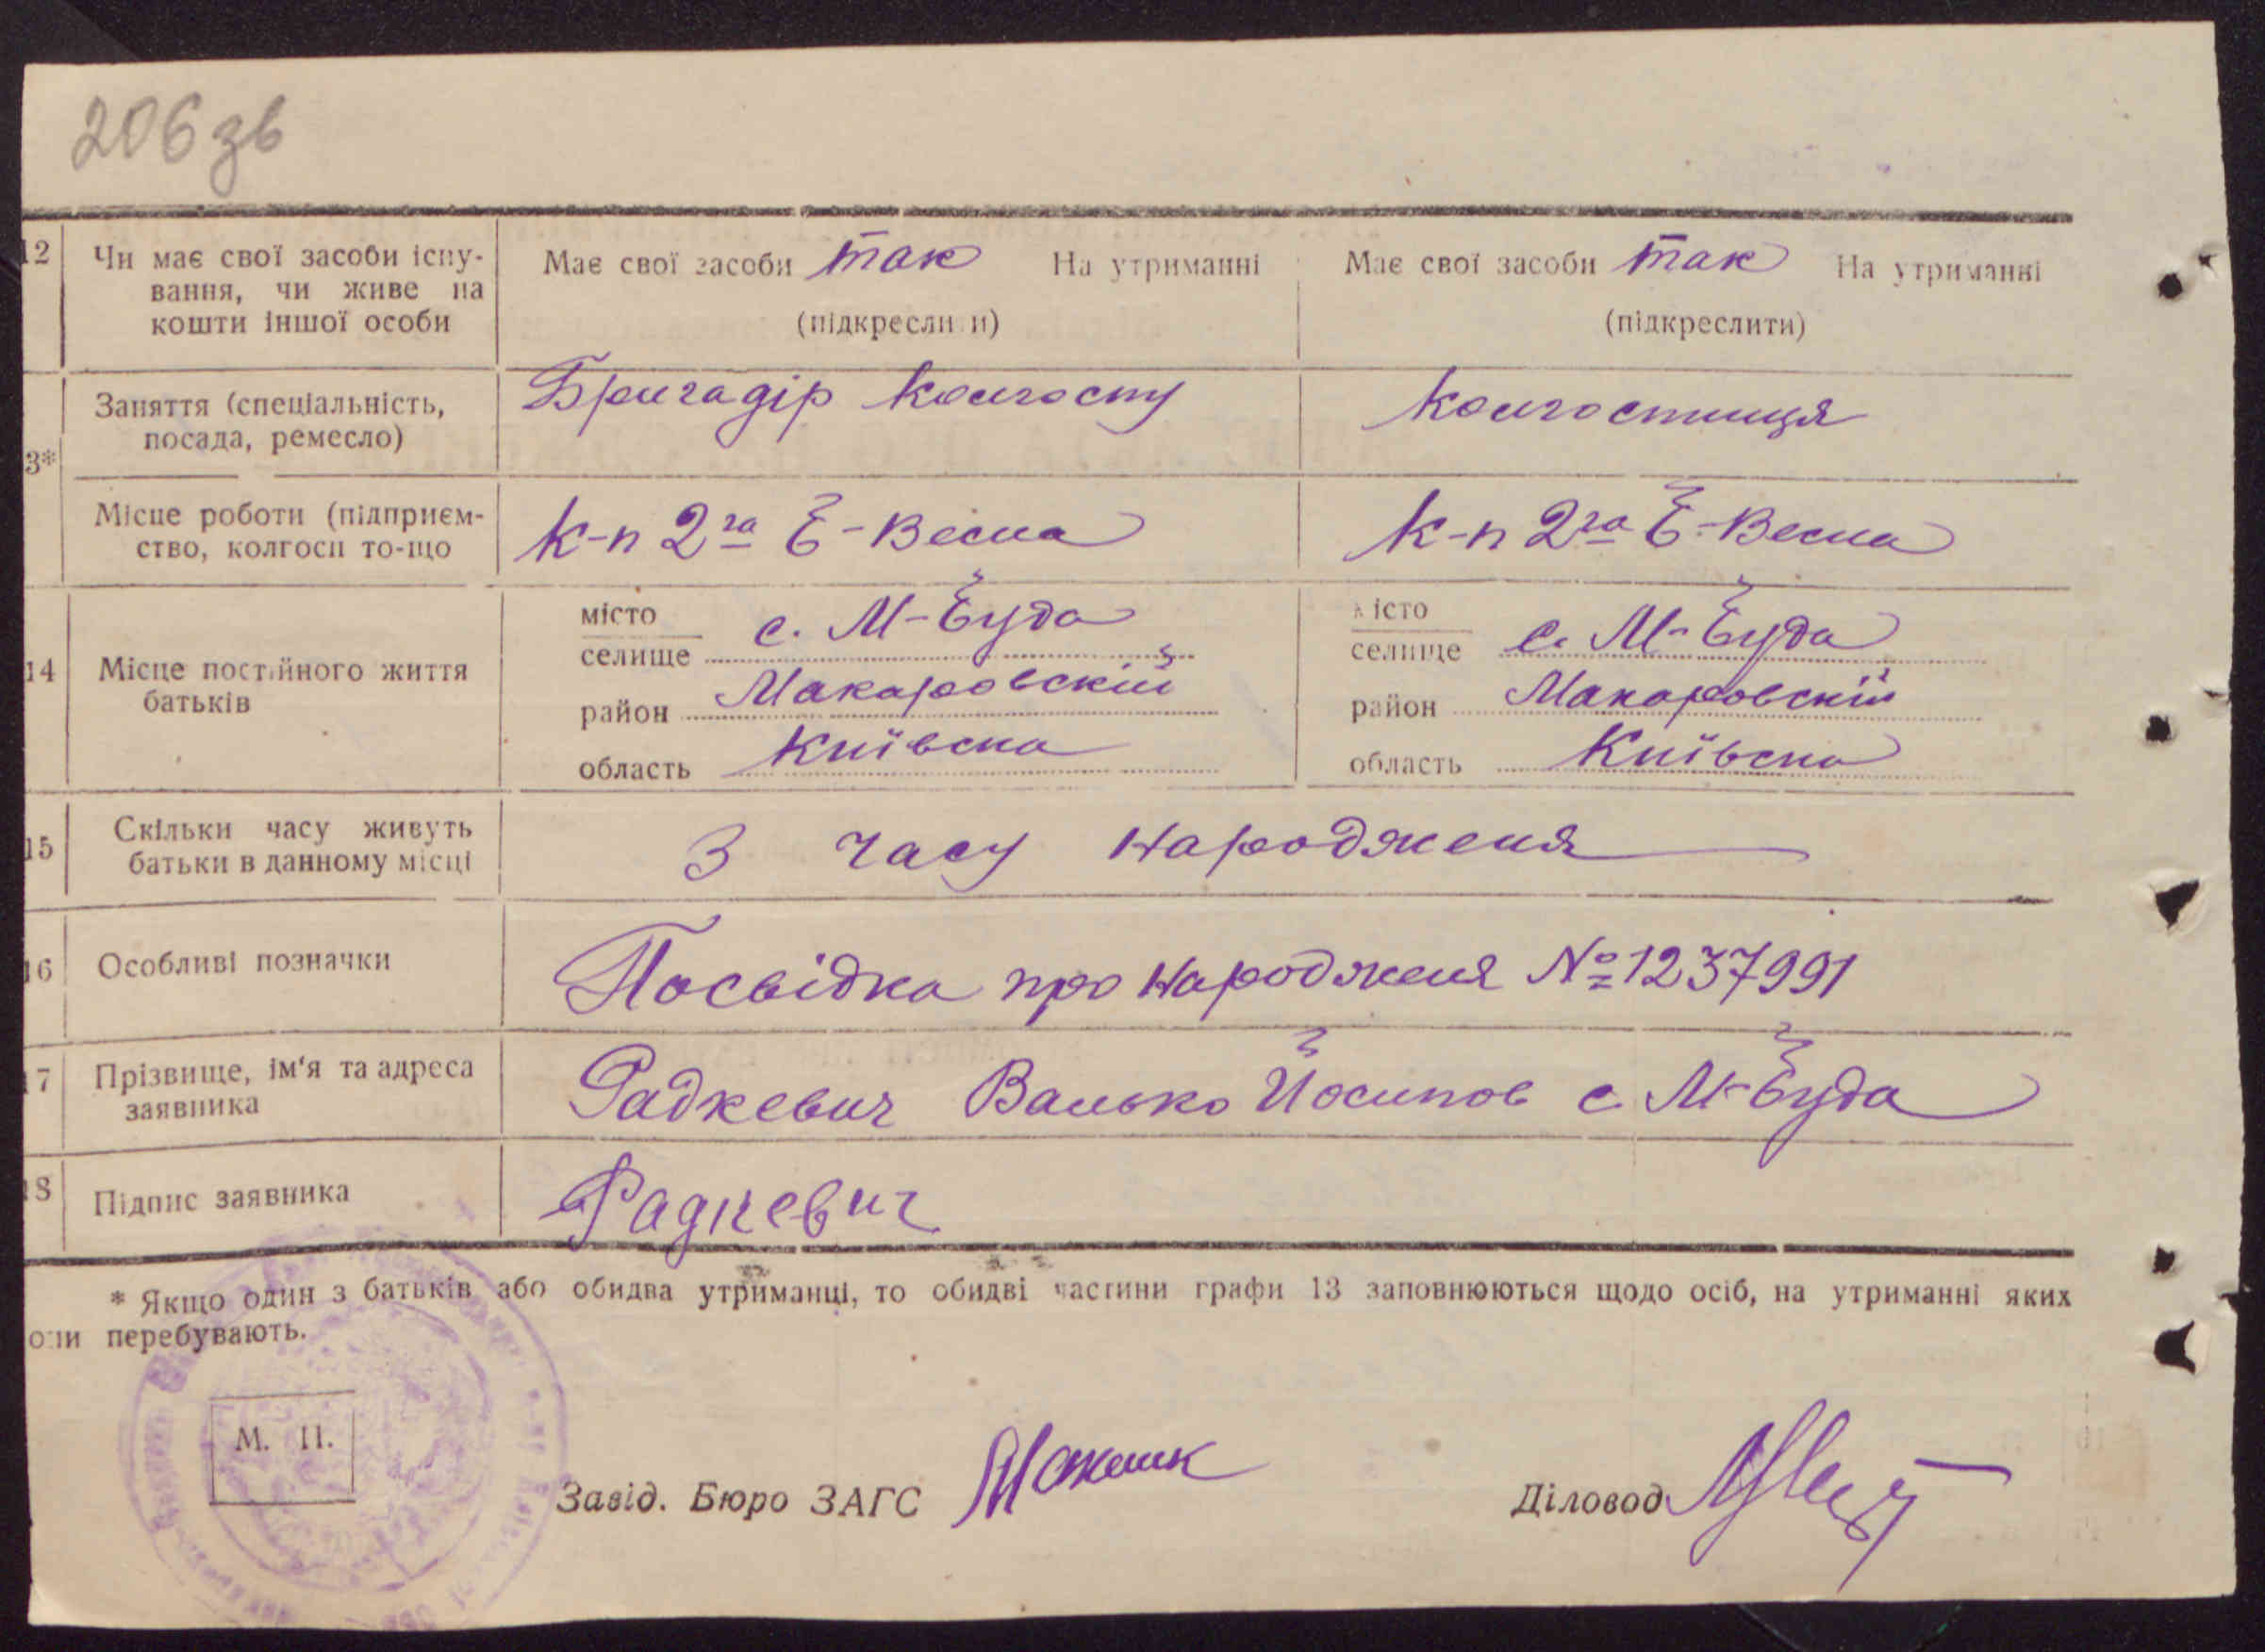 206 зв
12 Чи має свої засоби існу-
вання, чи живе на
кошти іншої особи
Має свої засоби так На утриманні
(підкреслити)
Має свої засоби так На утриманні
(підкреслити)
3*
Заняття (спеціальність,
посада, ремесло)
Бригадір колгоспу
колгоспниця
Місце роботи (підприєм-
ство, колгосп то-що
к-п 2га Б-Весна
к-п 2га Б-Весна
14 Місце постійного життя
батьків
місто
селище с. М-Буда
район Макаровский
область Київска
місто
селище с. М-Буда
район Макаровскій
область Київска
15 Скільки часу живуть
батьки в данному місці
З часу народженя
16 Особливі позначки
Посвідка про народженя № 1237991
17 Прізвище, ім'я та адреса
заявника
Радкевич Валько Йосипов с. М-Буда
18 Підпис заявника
Радкевич
* Якщо один з батьків або обидва утриманці, то обидві частини графи 13 заповнюються щодо осіб, на утриманні яких
они перебувають.
М. П.
Завід. Бюро ЗАГС
Діловод